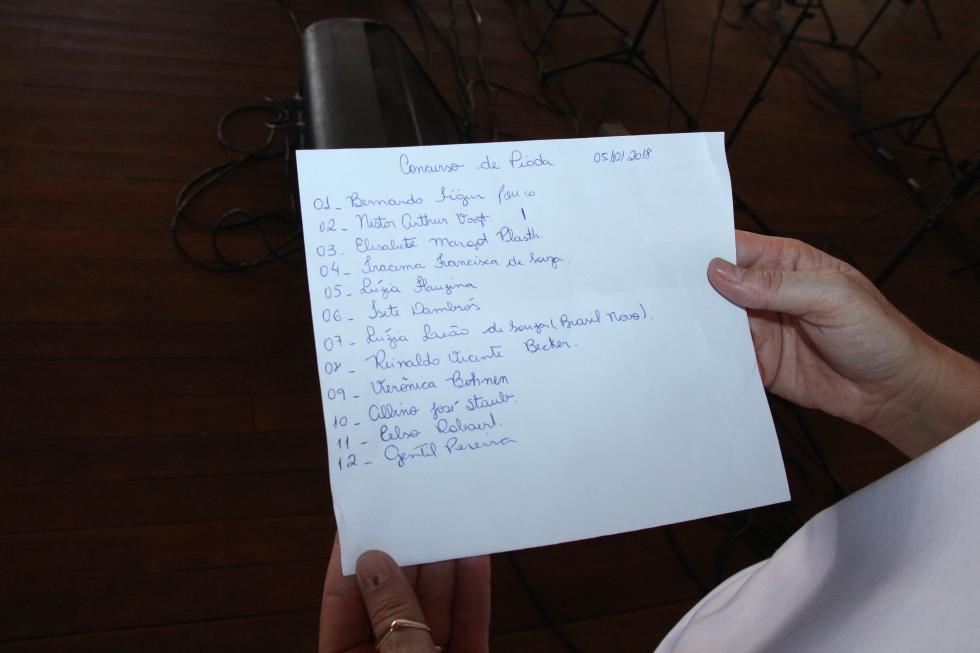 Concurso de Piada 05/01/2018
01 - Bernardo
02 - Nestor Arthur Vogt
03 - Elisabete Margot
04 - Iracema Francisca de Souza.
05 - Luzia
06 - Isete Dambrós
07 - Luzia de Souza (Brasil Novo).
08 - Reinaldo Vicente Becker.
09 - Verônica Bohnen
10 - Albino José Staub.
11 - Celso
12 - Gentil Pereira